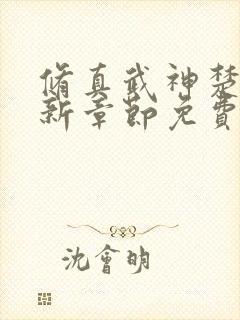 脩真武神楚
新章節免費
沈會明